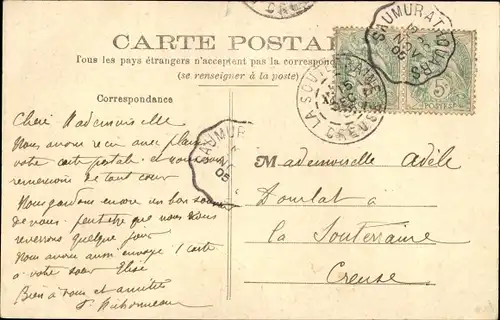 CARTE POSTALE
Tous les pays étrangers n'acceptent pas la correspondance
(se renseigner à la poste)
Correspondance
SAUMUR AT
05
LA SOUTERRAINE
CREUSE
SAUMUR
05
POSTES
Chère Mademoiselle
Nous avons reçu avec plaisir
votre carte postale et nous vous
remercions de tout cœur
Nous gardons encore un bon
de vous. peut être que nous vous
reverrons quelque jour
Nous avons aussi envoyé 1 carte
à votre sœur Elise
Bien à vous et amitiés
Mademoiselle Adèle
à
la Souterraine
Creuse